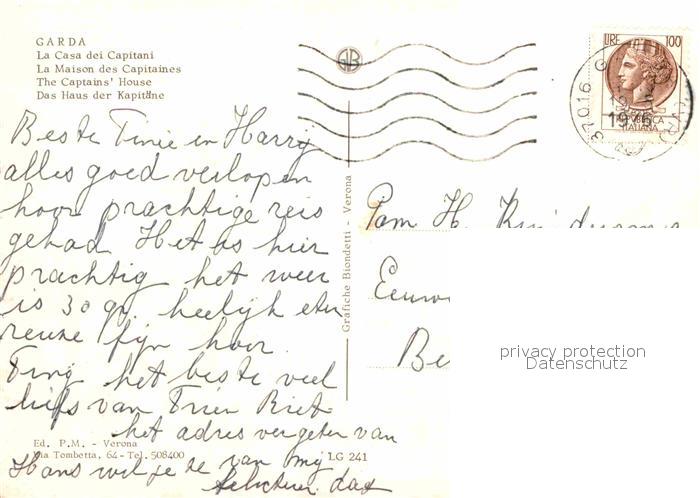 GARDA
La Casa dei Capitani
La Maison des Capitaines
The Captains' House
Das Haus der Kapitäne
LIRE 100
REPUBBLICA
ITALIANA
37016
Beste Tinie en Harry
alles goed verlopen
hoor prachtige reis
gehad Het is hier
prachtig het weer
is 30 gr. heelijk eten
reuze fijn hoor.
Tinij het beste veel
liefs van Trien Riet
het adres vergeten van
Hans wil je ze van mij
dag
Ed. P.M. - Verona
Via Tombetta, 64 - Tel. 508400
LG 241
Grafiche Biondetti - Verona
Fam H.
Be
privacy protection
Datenschutz